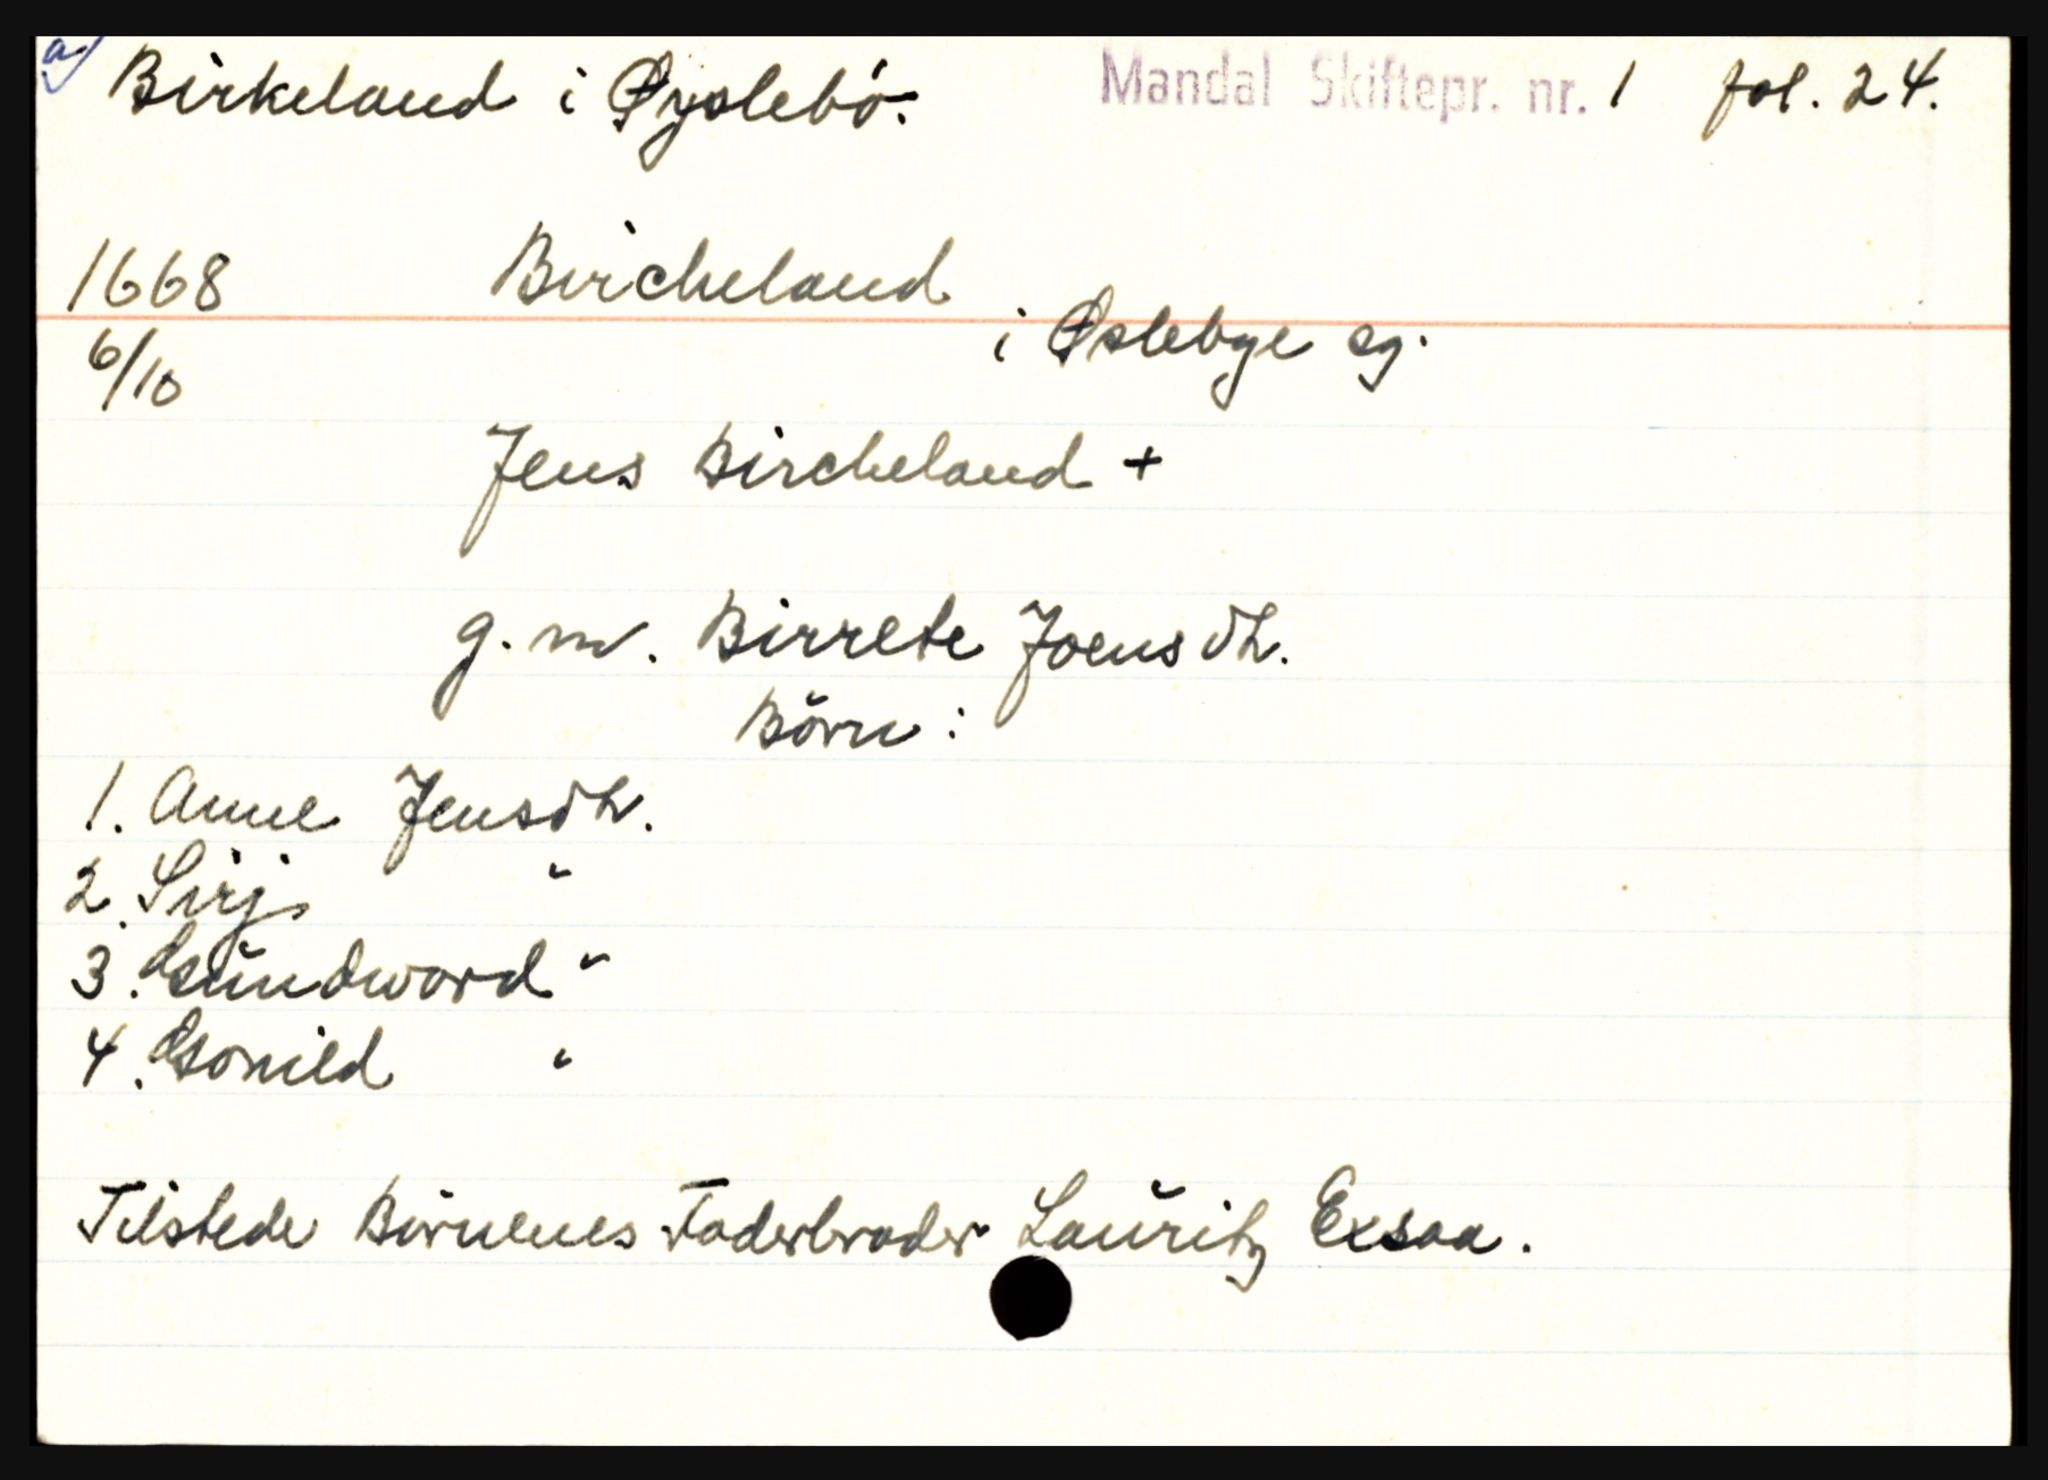 a)
Birkeland i Øyslebö. Mandal Skiftepr. nr. 1 fol. 24.
1668 Bircheland
6/10 i Øslebye sg.
Jens Bircheland +
g. m. Birrete Joensdtr.
Börn:
1. Anne Jensdtr.
2. Sirj "
3. Gundword "
4. Gonild "
Tilstede Börnenes Faderbroder Lauritz Exsaa.